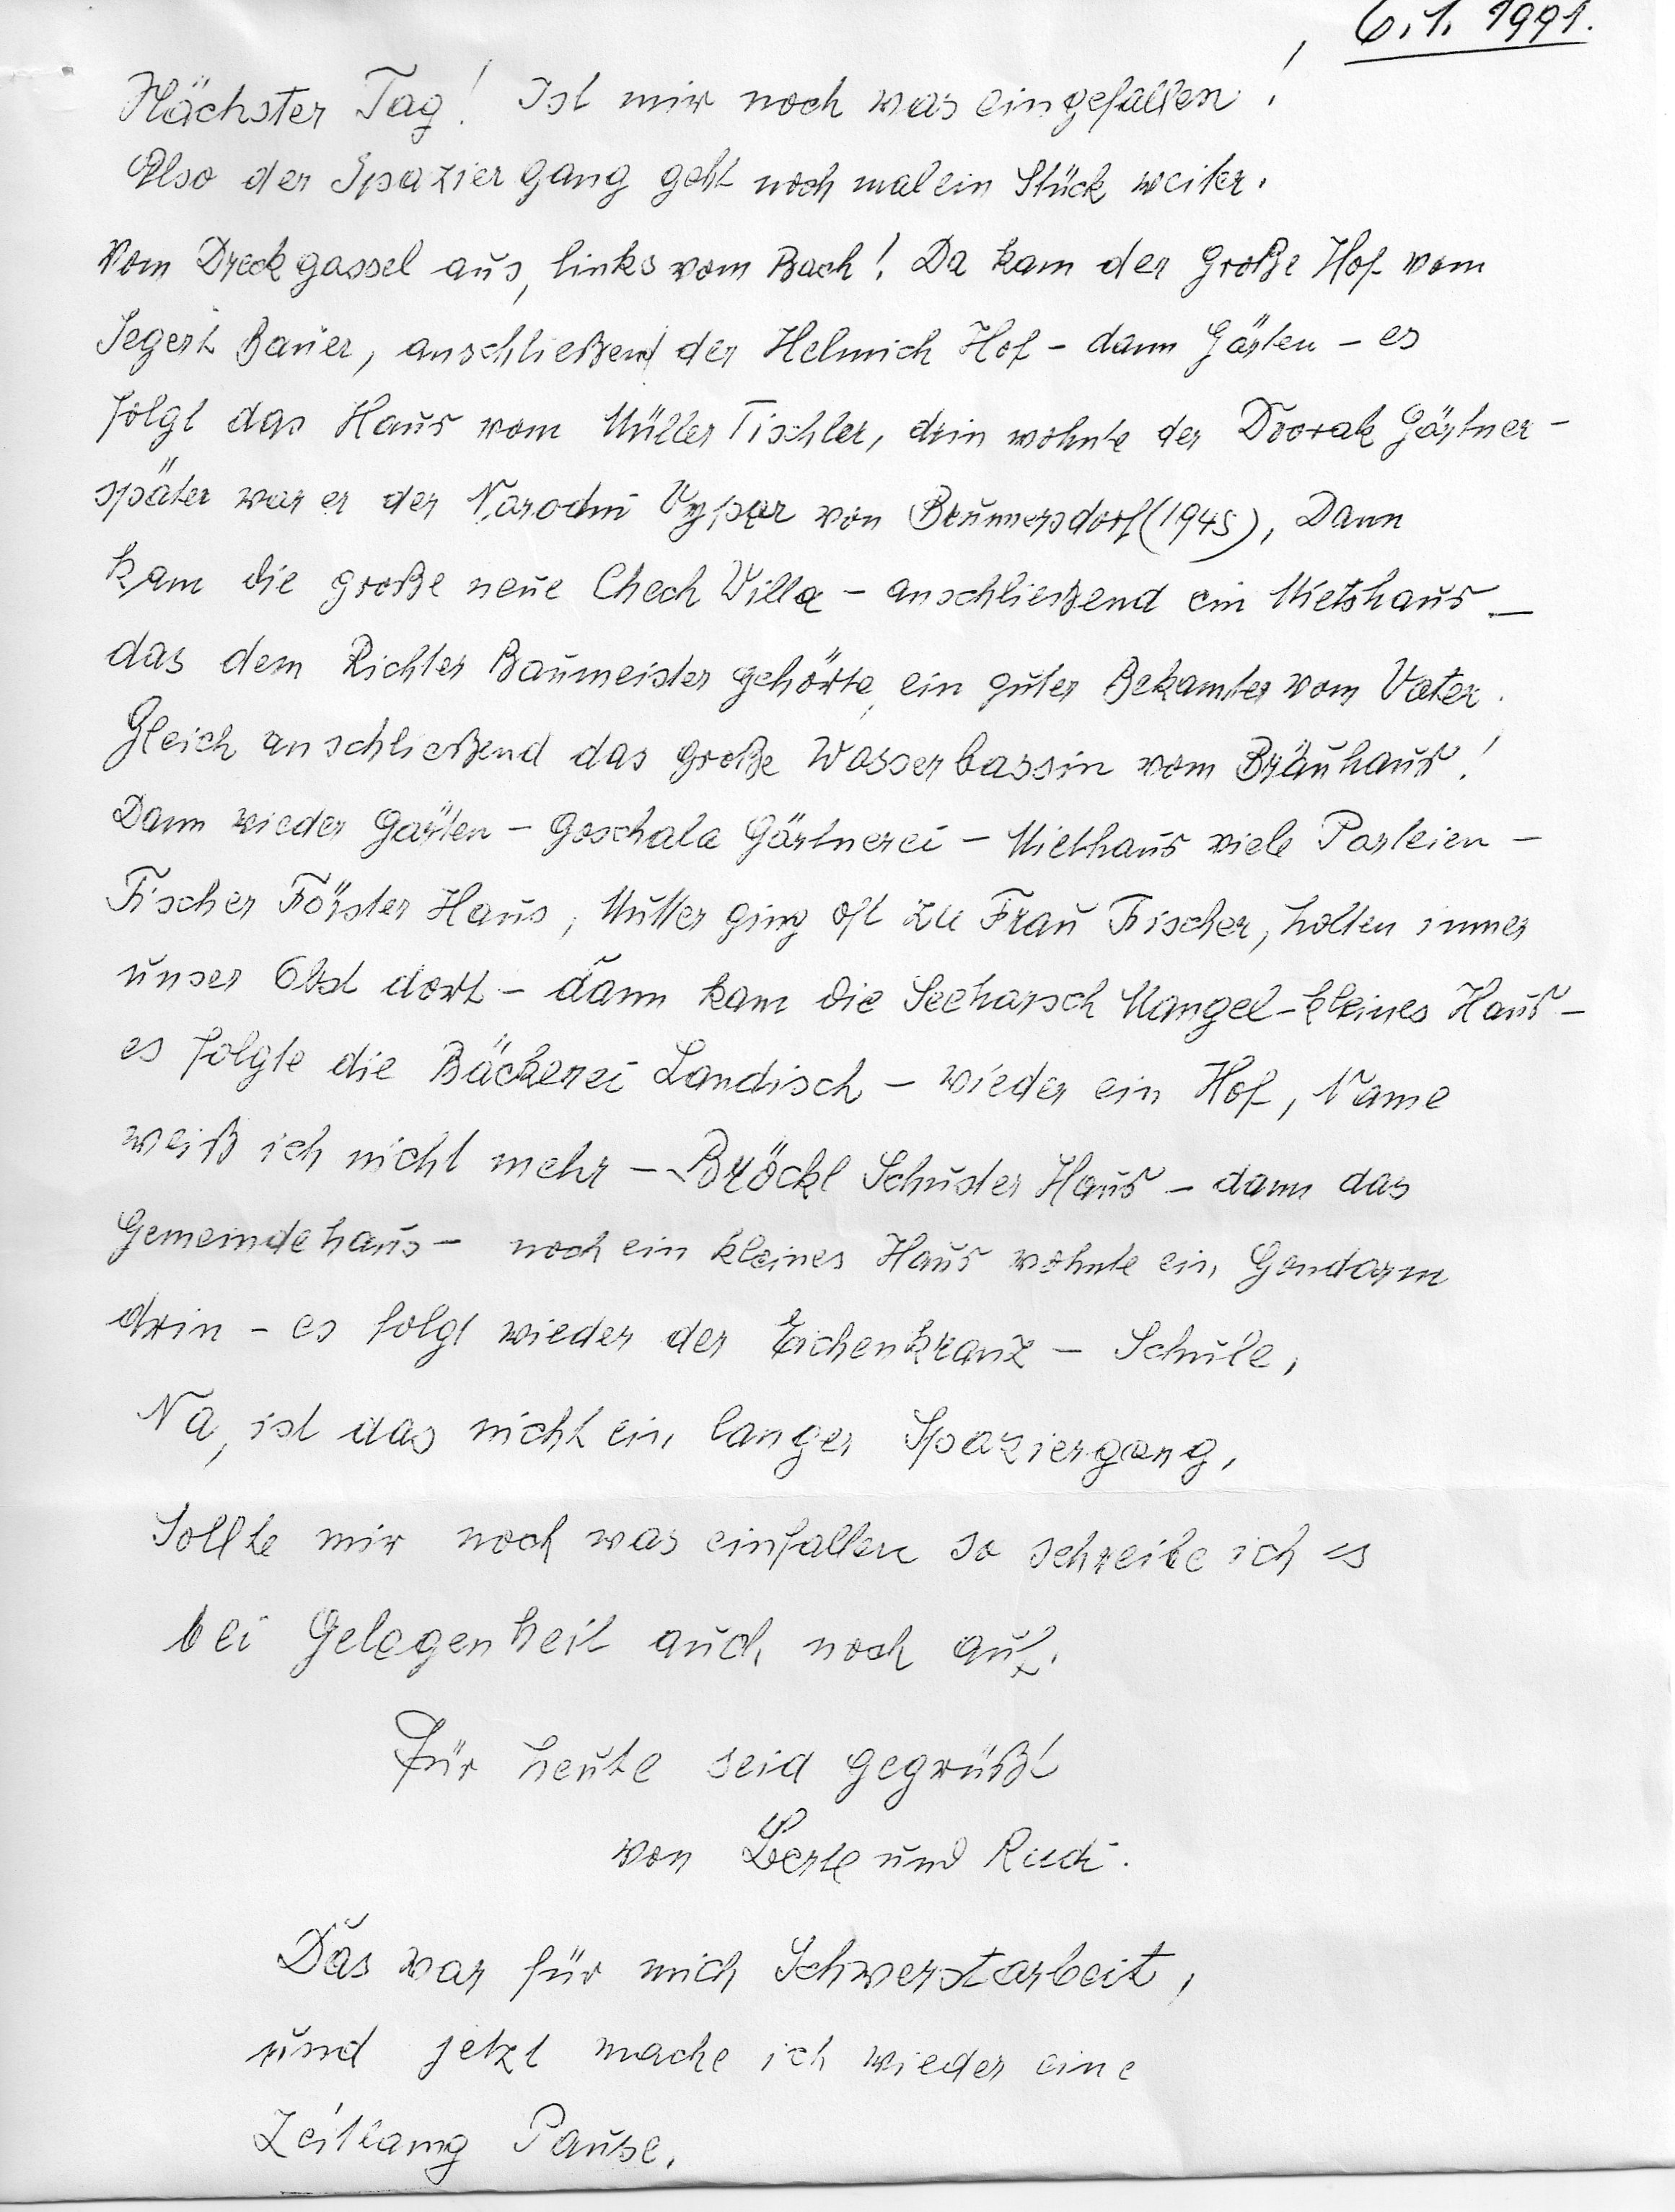 6.1.1991.
Nächster Tag! Ist mir noch was eingefallen!
Also der Spaziergang geht noch mal ein Stück weiter.
Vom Dreckgassel aus, links vom Bach! Da kam der große Hof vom
Segert Bauer, anschließend der Helmich Hof - dann Gärten - es
folgt das Haus vom Müller Tischler, drin wohnte der Dvorak Gärtner -
später war er der Narodni Vypar von Brunnersdorf (1945), Dann
kam die große neue Chech Villa - anschließend ein Mietshaus -
das dem Richter Baumeister gehörte, ein guter Bekannter vom Vater.
Gleich anschließend das große Wasserbassin vom Bräuhaus!
Dann wieder Gärten - Goschala Gärtnerei - Miethaus viele Parteien -
Fischer Förster Haus, Mutter ging oft zu Frau Fischer, holten immer
unser Obst dort - dann kam die Seeharsch Mangel - kleines Haus -
es folgte die Bäckerei Landisch - wieder ein Hof, Name
weiß ich nicht mehr - Bröckl Schuster Haus - dann das
Gemeindehaus - noch ein kleines Haus wohnte ein Gendarm
drin - es folgt wieder der Eichenkranz - Schule,
Na, ist das nicht ein langer Spaziergang,
Sollte mir noch was einfallen so schreibe ich es
bei Gelegenheit auch noch auf.
Für heute seid gegrüßt
von Berte und Rudi.
Das war für mich Schwerstarbeit,
und jetzt mache ich wieder eine
Zeitlang Pause.